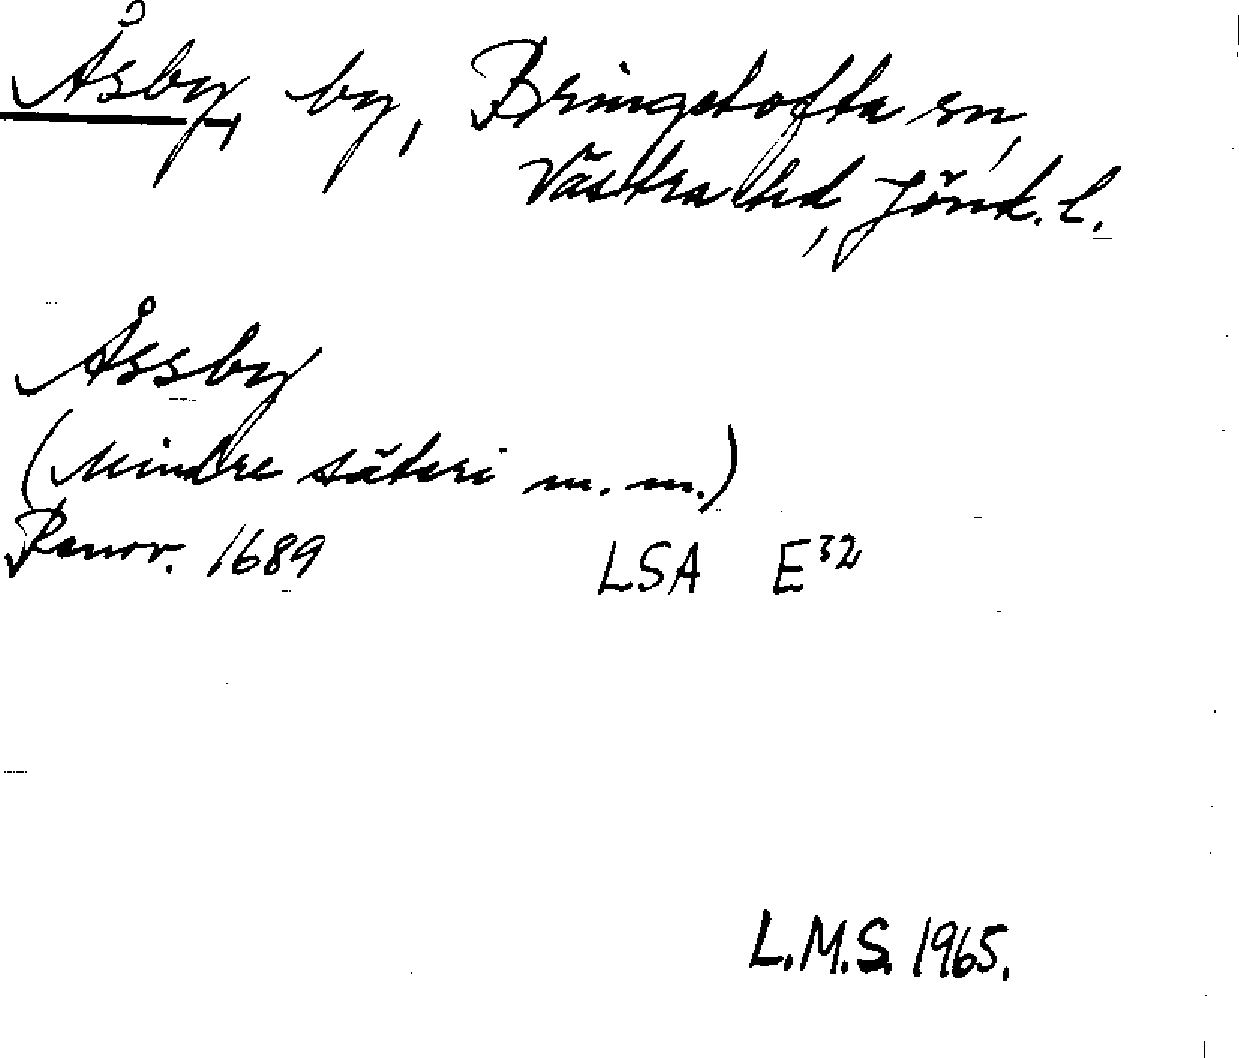 Åsby, by, Bringetofta sn,
Västra hd, Jönk. l.
Åssby
(Mindre säteri m. m.)
Renov. 1689 LSA E³²
L.M.S. 1965.